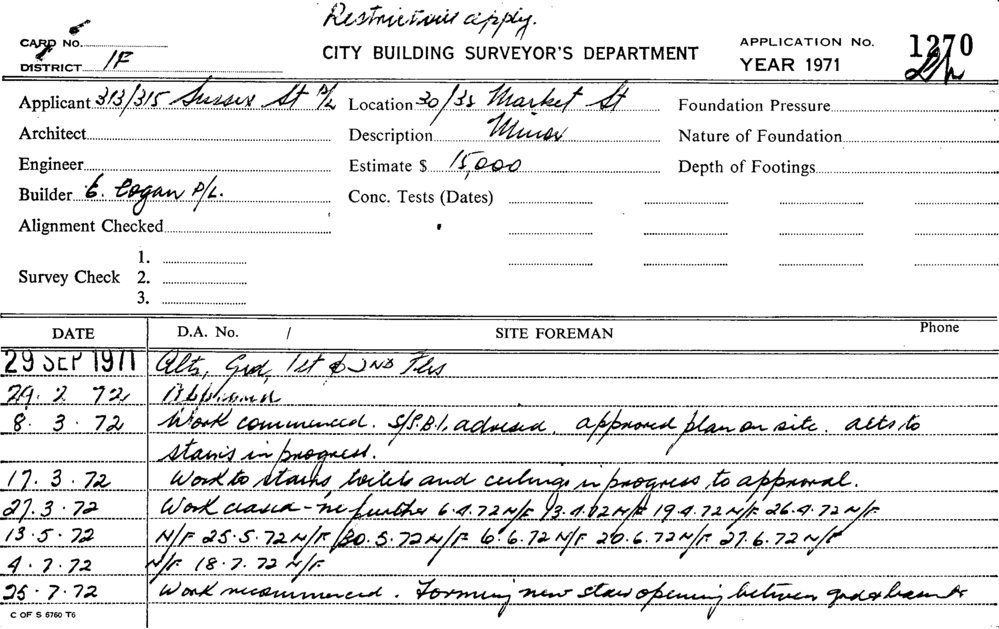 Restrictions apply.
CARD No.
DISTRICT 1F
CITY BUILDING SURVEYOR'S DEPARTMENT
APPLICATION No. 1270
YEAR 1971
Applicant 313/315 Sussex St P/L Location 30/32 Market St Foundation Pressure
Architect Description Minor Nature of Foundation
Engineer Estimate $ 15,000 Depth of Footings
Builder E. Cogan P/L. Conc. Tests (Dates)
Alignment Checked
1.
Survey Check 2.
3.
DATE D.A. No. / SITE FOREMAN Phone
29 SEP 1971 Alts, Grd, 1st & 2ND Flrs
29. 2. 72 Approved
8. 3. 72 Work commenced. S/S.B.I. advised. approved plan on site. alts to
stairs in progress.
17. 3. 72 Work to stairs, toilets and ceilings in progress, to approval.
27. 3. 72 Work ceased - no further 6.4.72 N/F 13.4.72 N/F 19.4.72 N/F 26.4.72 N/F
13. 5. 72 N/F 25.5.72 N/F 30.5.72 N/F 6.6.72 N/F 20.6.72 N/F 27.6.72 N/F
4. 7. 72 N/F 18.7.72 N/F
25. 7. 72 Work recommenced. Forming new stair opening between grd &
C OF S 5760 T6